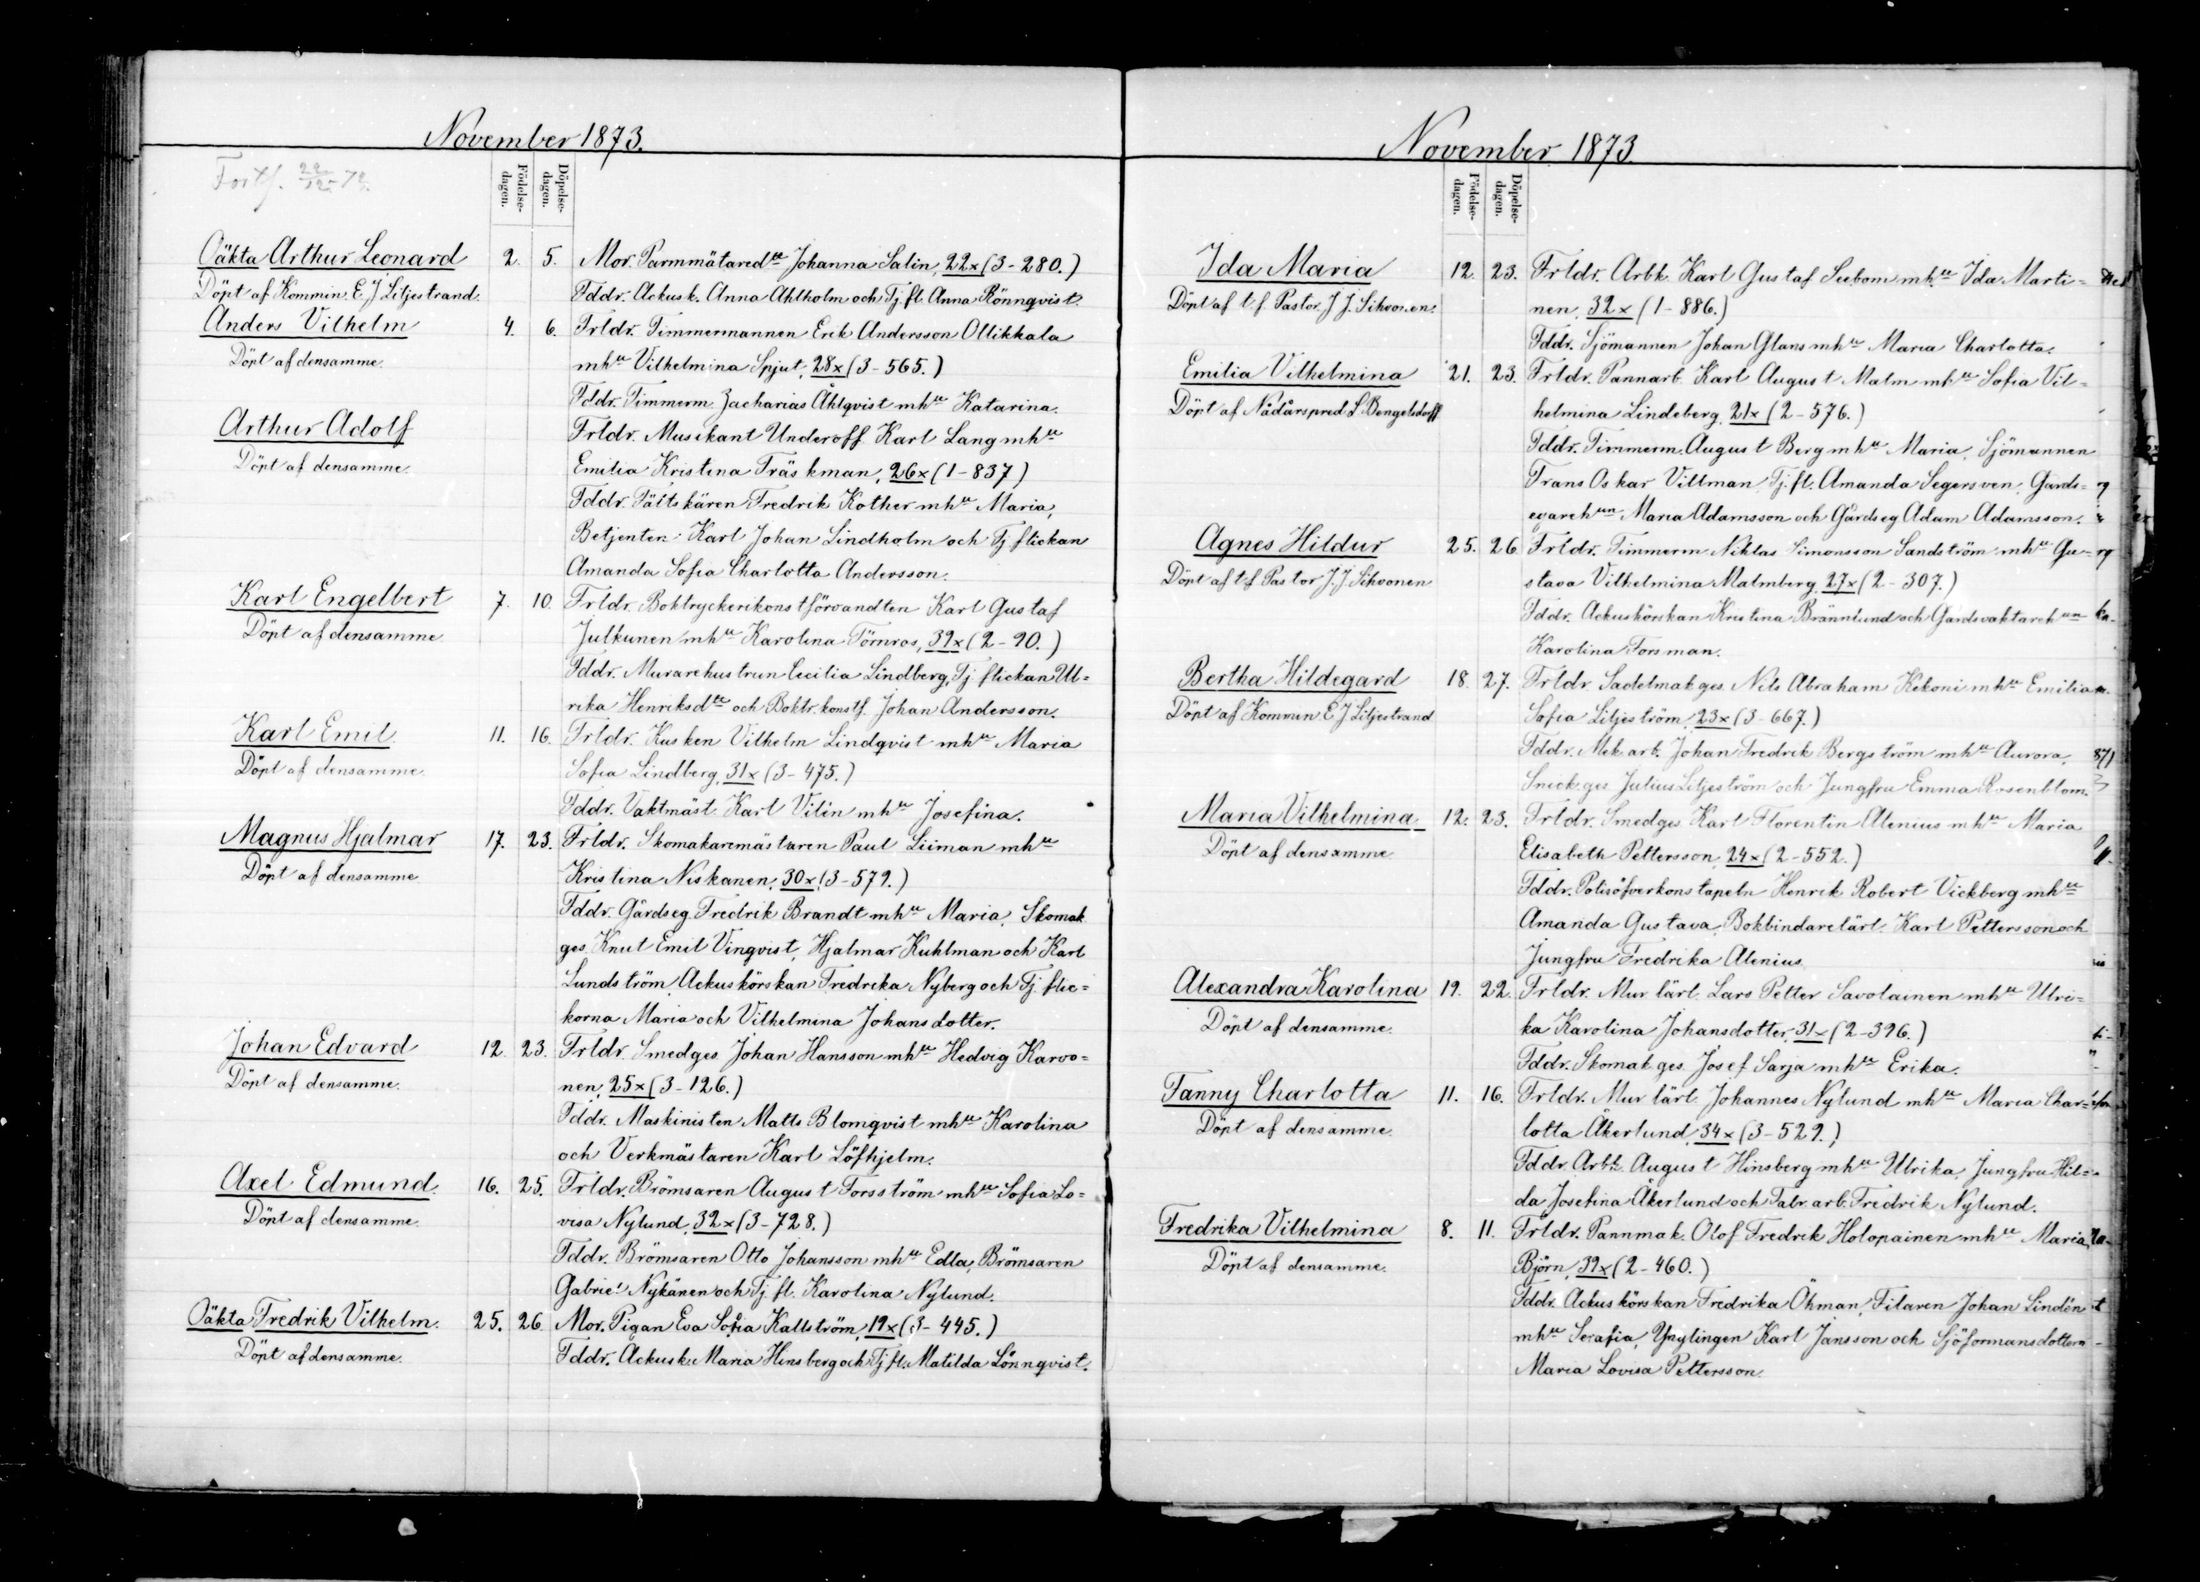 November 1873.
Fortf. 22/12 - 73.
Födelse-dagen.
Döpelse-dagen.
Oäkta Arthur Leonard 2. 5. Mor. Parmmätaredr Johanna Salin, 22 x (3-280.)
Döpt af Kommin. E. J. Liljestrand. Fddr. Ackusk. Anna Ahlholm och Tj. fl. Anna Rönnqvist.
Anders Vilhelm 4. 6. Frldr. Timmermannen Erik Andersson Ollikkala
Döpt af densamme. mhu Vilhelmina Spjut, 28 x (3-565.)
Fddr. Timmerm. Zacharias Åhlqvist mhu Katarina.
Arthur Adolf Frldr. Musikant Underoff. Karl Lang mhu
Döpt af densamme. Emilia Kristina Träskman, 26 x (1-837)
Fddr. Fältskären Fredrik Kother mhu Maria,
Betjenten Karl Johan Lindholm och Tj. flickan
Amanda Sofia Charlotta Andersson.
Karl Engelbert 7. 10. Frldr. Boktryckerikonstförvandten Karl Gustaf
Döpt af densamme Julkunen mhu Karolina Törnros, 39 x (2-90.)
Fddr. Murarehustrun Cecilia Lindberg, Tj. flickan Ul=
rika Henriksdtr och Boktr. konstf. Johan Andersson.
Karl Emil 11. 16. Frldr. Kusken Vilhelm Lindqvist mhu Maria
Döpt af densamme. Sofia Lindberg, 31 x (3-475.)
Fddr. Vaktmäst. Karl Vilén mhu Josefina.
Magnus Hjalmar 17. 23. Frldr. Skomakaremästaren Paul Liiman mhu
Döpt af densamme Kristina Niskanen, 30 x (3-579.)
Fddr. Gårdseg. Fredrik Brandt mhu Maria, Skomak.
ges. Knut Emil Vinqvist, Hjalmar Kuhlman och Karl
Lundström, Ackuskörskan Fredrika Nyberg och Tj. flic=
korna Maria och Vilhelmina Johansdotter.
Johan Edvard 12. 23. Frldr. Smedges. Johan Hansson mhu Hedvig Karvo=
Döpt af densamme. nen, 25 x (3-126.)
Fddr. Maskinisten Matts Blomqvist mhu Karolina
och Verkmästaren Karl Löfhjelm.
Axel Edmund. 16. 25. Frldr. Brömsaren August Forsström mhu Sofia Lo=
Döpt af densamme. visa Nylund, 32 x (3-728.)
Fddr. Brömsaren Otto Johansson mhu Edla, Brömsaren
Gabriel Nykänen och Tj. fl. Karolina Nylund.
Oäkta Fredrik Vilhelm. 25. 26. Mor. Pigan Eva Sofia Kallström, 19 x (3-445.)
Döpt af densamme. Fddr. Ackusk. Maria Hinsberg och Tj. fl. Matilda Lönnqvist.
November 1873
Födelse-dagen.
Döpelse-dagen.
Ida Maria 12. 23. Frldr. Arbk. Karl Gustaf Seebom mhu Ida Marti=
Döpt af t.f. Pastor J. J. Sihvonen. nen, 32 x (1-886.)
Fddr. Sjömannen Johan Glans mhu Maria Charlotta.
Emilia Vilhelmina 21. 23. Frldr. Pannarb. Karl August Malm mhu Sofia Vil=
Döpt af Nådårspred. L. Bengelsdorff helmina Lindeberg, 21 x (2-576.)
Fddr. Timmerm. August Berg mhu Maria, Sjömannen
Frans Oskar Villman, Tj. fl. Amanda Segersven, Gårds=
egareh:un Maria Adamsson och Gårdseg. Adam Adamsson.
Agnes Hildur 25. 26. Frldr. Timmerm. Niklas Simonsson Sandström mhu Gu=
Döpt af t.f. Pastor J. J. Sihvonen stava Vilhelmina Malmberg, 27 x (2-307.)
Fddr. Ackuskörskan Kristina Brännlund och Gårdsvaktareh:un
Karolina Forsman.
Bertha Hildegard 18. 27. Frldr. Sadelmak. ges. Nils Abraham Kekoni mhu Emilia
Döpt af Kommin. E. J. Liljestrand Sofia Liljeström, 23 x (3-667.)
Fddr. Mek. arb. Johan Fredrik Bergström mhu Aurora,
Snick. ges. Julius Liljeström och Jungfru Emma Rosenblom.
Maria Vilhelmina 12. 23. Frldr. Smedges. Karl Florentin Alenius mhu Maria
Döpt af densamme Elisabeth Pettersson, 24 x (2-552.)
Fddr. Polisöfverkonstapeln Henrik Robert Vickberg mhu
Amanda Gustava, Bokbindarelärl. Karl Pettersson och
Jungfru Fredrika Alenius.
Alexandra Karolina 19. 22. Frldr. Mur. lärl. Lars Petter Savolainen mhu Ulri=
Döpt af densamme. ka Karolina Johansdotter, 31 x (2-396.)
Fddr. Skomak. ges. Josef Sarja mhu Erika.
Fanny Charlotta 11. 16. Frldr. Mur. lärl. Johannes Nylund mhu Maria Char=
Döpt af densamme. lotta Åkerlund, 34 x (3-529.)
Fddr. Arbk. August Hinsberg mhu Ulrika, Jungfru Hil=
da Josefina Åkerlund och Fabr. arb. Fredrik Nylund.
Fredrika Vilhelmina 8. 11. Frldr. Pannmak. Olof Fredrik Holopainen mhu Maria
Döpt af densamme. Björn, 39 x (2-460.)
Fddr. Ackuskörskan Fredrika Öhman, Filaren Johan Lindén
mhu Serafia, Ynglingen Karl Jansson och Sjöformansdottern
Maria Lovisa Pettersson.